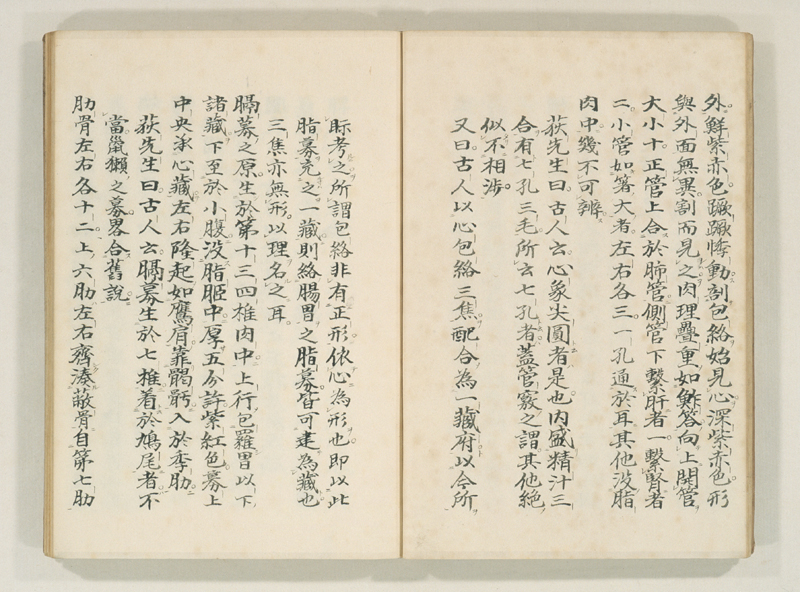 外鮮紫赤色蹶蹶悸動割包絡始見心深紫赤色形
與外面無異割而見之肉理疊重如魚答向上開管
大小十正管上合於肺管側管下繫肝者一繫腎者
二小管如箸大者左右各三一孔通於耳其他没脂
肉中幾不可辨
荻先生曰古人云心象尖圓者是也内盛精汁三
合有七孔三毛所云七孔者蓋管竅之謂其他絶
似不相渉
又曰古人以心包絡三焦配合為一藏府以今所
眎考之所謂包絡非有正形依心為形也即以此
脂募充之一藏則絡腸胃之脂募皆可建為藏也
三焦亦無形以理名之耳
膈募之原生於第十三四椎肉中上行包羅胃以下
諸藏下至於小腹没脂䐃中厚五分許紫紅色募上
中央承心藏左右隆起如鷹肩靠𩩲骬入於季肋
荻先生曰古人云膈募生於七椎着於鳩尾者不
當嵐獺之募畧合舊說
肋骨左右各十二上六肋左右齊湊蔽骨自第七肋